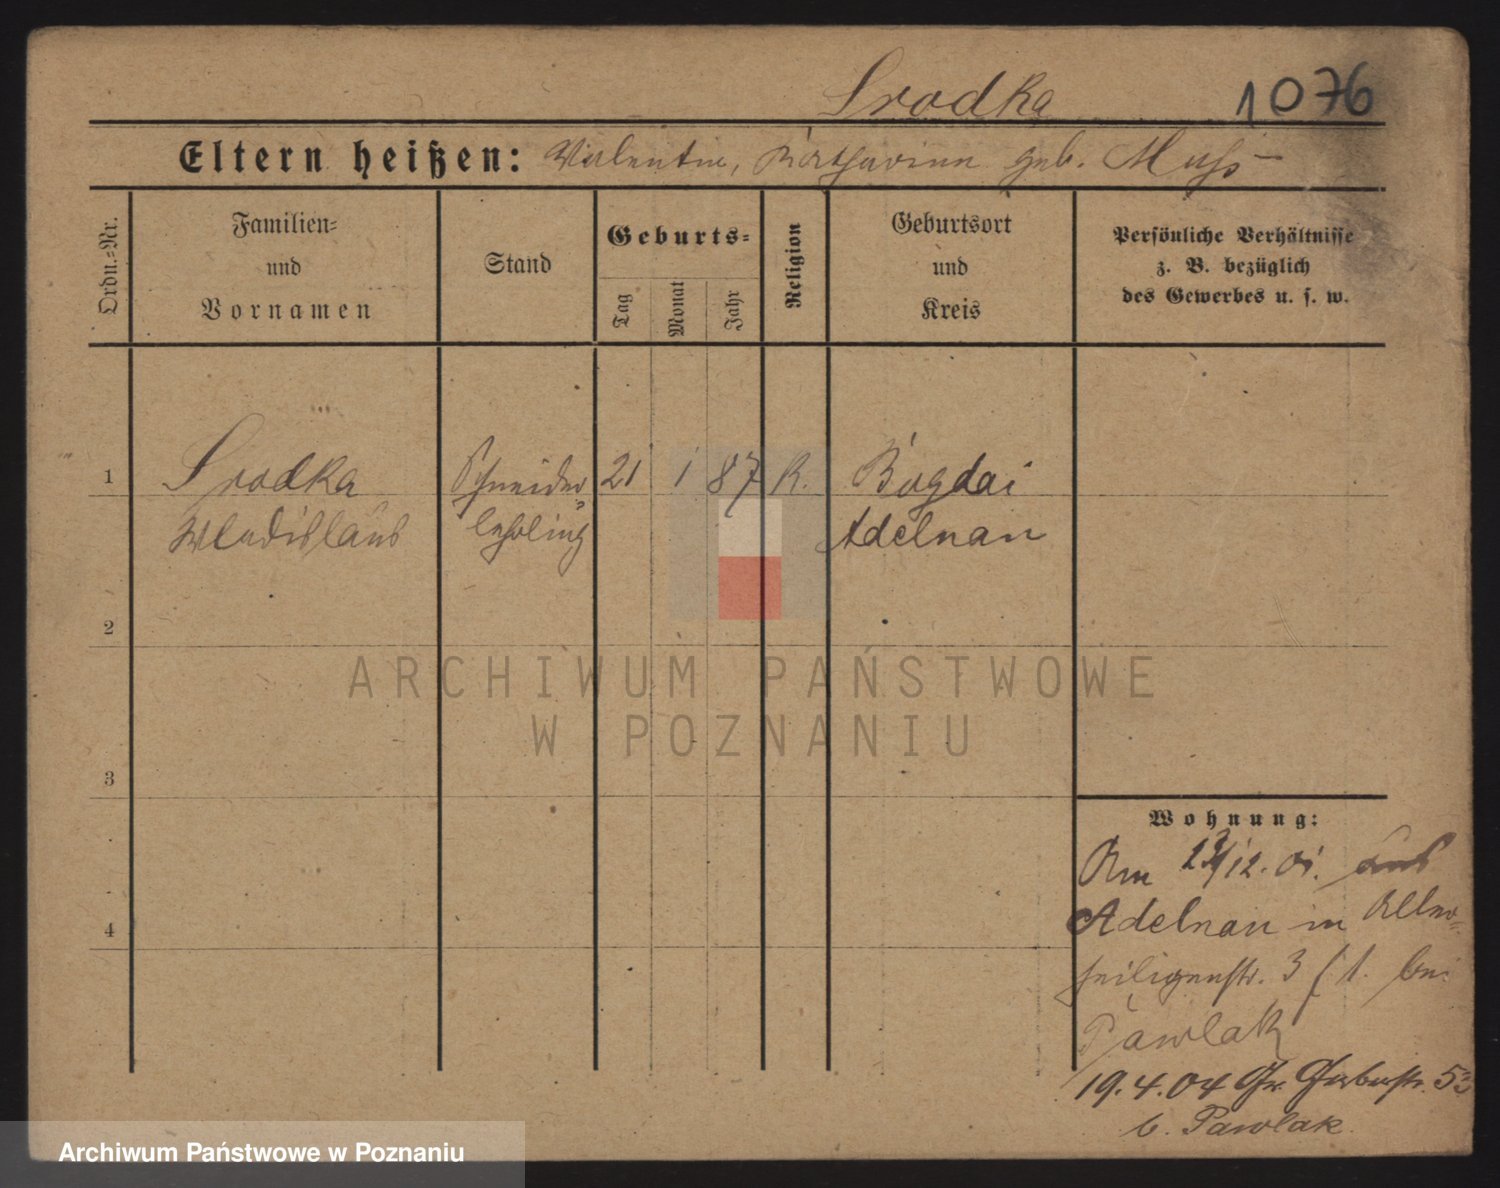 Srodka 1076
Eltern heißen: Valentin, Katharina geb. Muss
Ordn.-Nr.
Familien-
und
Vornamen
Stand
Geburts-
Tag
Monat
Jahr
Religion
Geburtsort
und
Kreis
Persönliche Verhältnisse
z. B. bezüglich
des Gewerbes u. s. w.
1 Srodka Schneider 21 1 87 K. Bogdai
Wladislaus lehrling Adelnau
2
ARCHIWUM PAŃSTWOWE
W POZNANIU
3
Wohnung:
Am /12. 01. aus
4 Adelnau in Aller-
heiligenstr. 3 / 1. bei
Pawlak
19.4.04 Gr. Gerberstr. 53
b. Pawlak
Archiwum Państwowe w Poznaniu